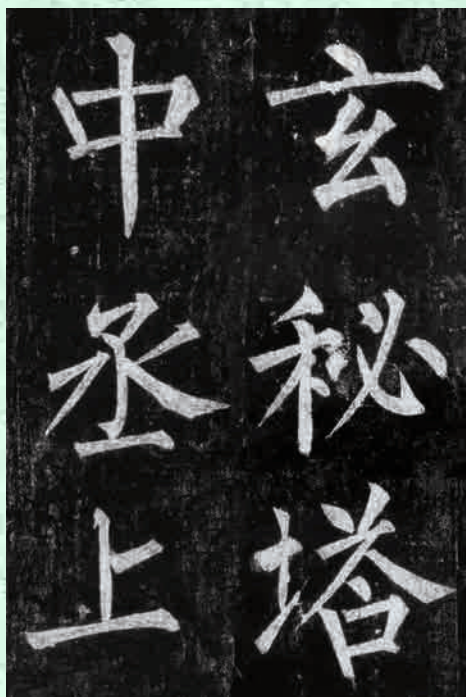 玄秘塔
中丞上